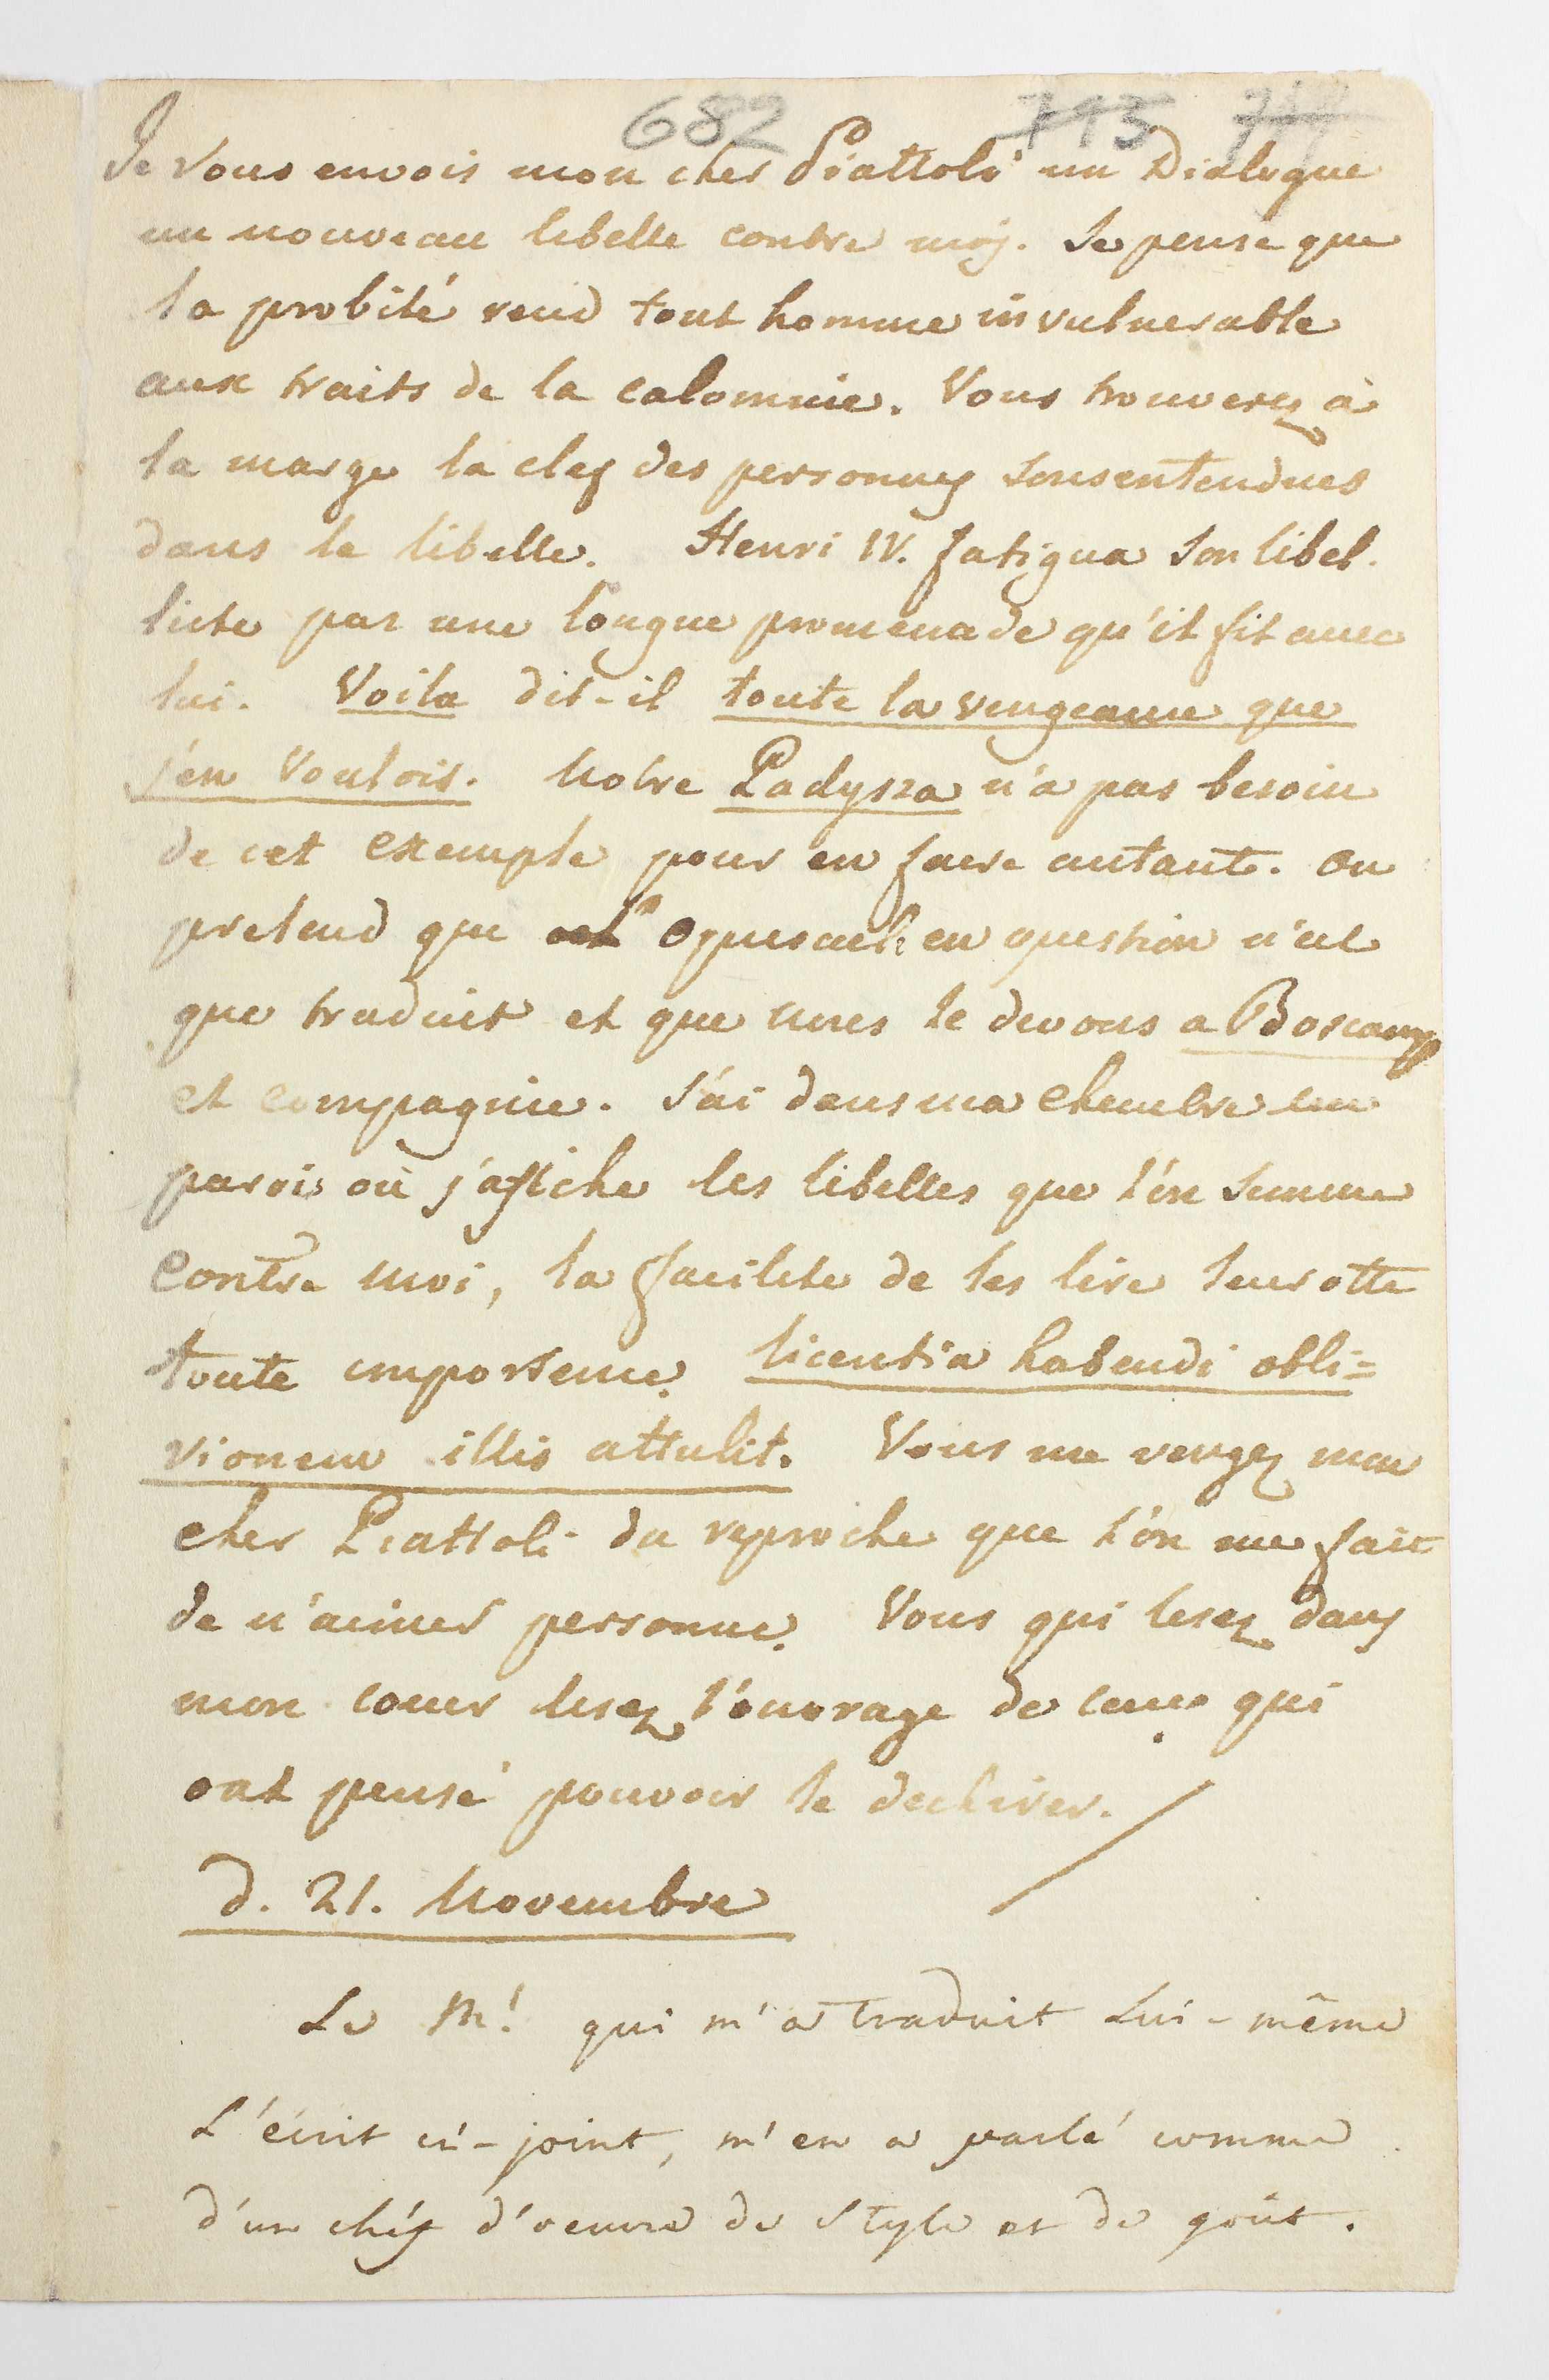 682 713 714
Je Vous envois mon cher Piattoli un Dialogue
un nouveau libelle contre moÿ. Je pense que
la probité rend tout homme invulnerable
aux traits de la calomnie. Vous trouverez à
la marge la clef des personnes sousentendues
dans le libelle. Henri IV. fatigua son libel-
liste par une longue promenade qu'il fit avec
lui. Voila dit-il toute la vengeance que
j'en Voulois. Notre Padysza n'a pas besoin
de cet exemple pour en faire autant. On
pretend que l'Opuscule en question n'est
que traduit et que nous le devons a Boscamp
et compagnie. J'ai dans ma chambre un
parois où j'affiche les libelles que l'on semme
contre moi, la facilite de les lire leur otte
toute importence. licentia habendi obli=
vionem illis attulit. Vous me vengez mon
cher Piattoli du reproche que l'on me fait
de n'aimer personne. Vous qui lesez dans
mon coeur lesez l'ouvrage de ceux qui
ont pensé pouvoir le dechirer.
d. 21. Novembre
Le Ml. qui m'a traduit Lui-même
L'écrit ci-joint, m'en a parlé comme
d'un chéf d'oeuvre de Style et de goût.